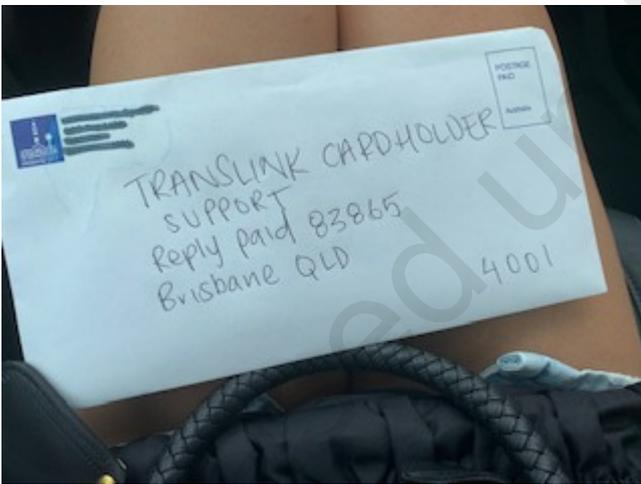 POSTAGE
PAID
Australia
TRANSLINK CARDHOLDER
SUPPORT
Reply paid 83865
Brisbane QLD
4001
ed u